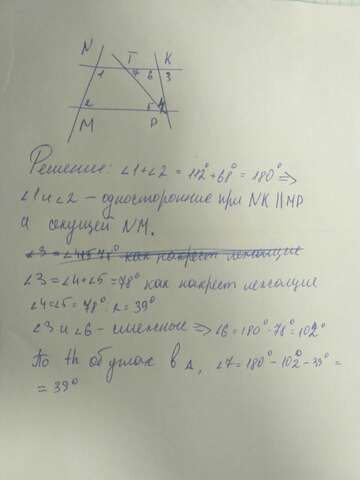 N T K
1 7 6 3
2 5 4
M P
Решение: ∠1+∠2 = 112°+68° = 180° ⇒
∠1 и ∠2 – односторонние при NK || MP
а секущей NM.
∠3 = 78° как накрест лежащие
∠3 = ∠4+∠5 = 78° как накрест лежащие
∠4=∠5 = 78° : 2 = 39°
∠3 и ∠6 – смежные ⇒ ∠6 = 180° - 78° = 102°
По th об углах в Δ, ∠7 = 180° - 102° - 39° =
= 39°